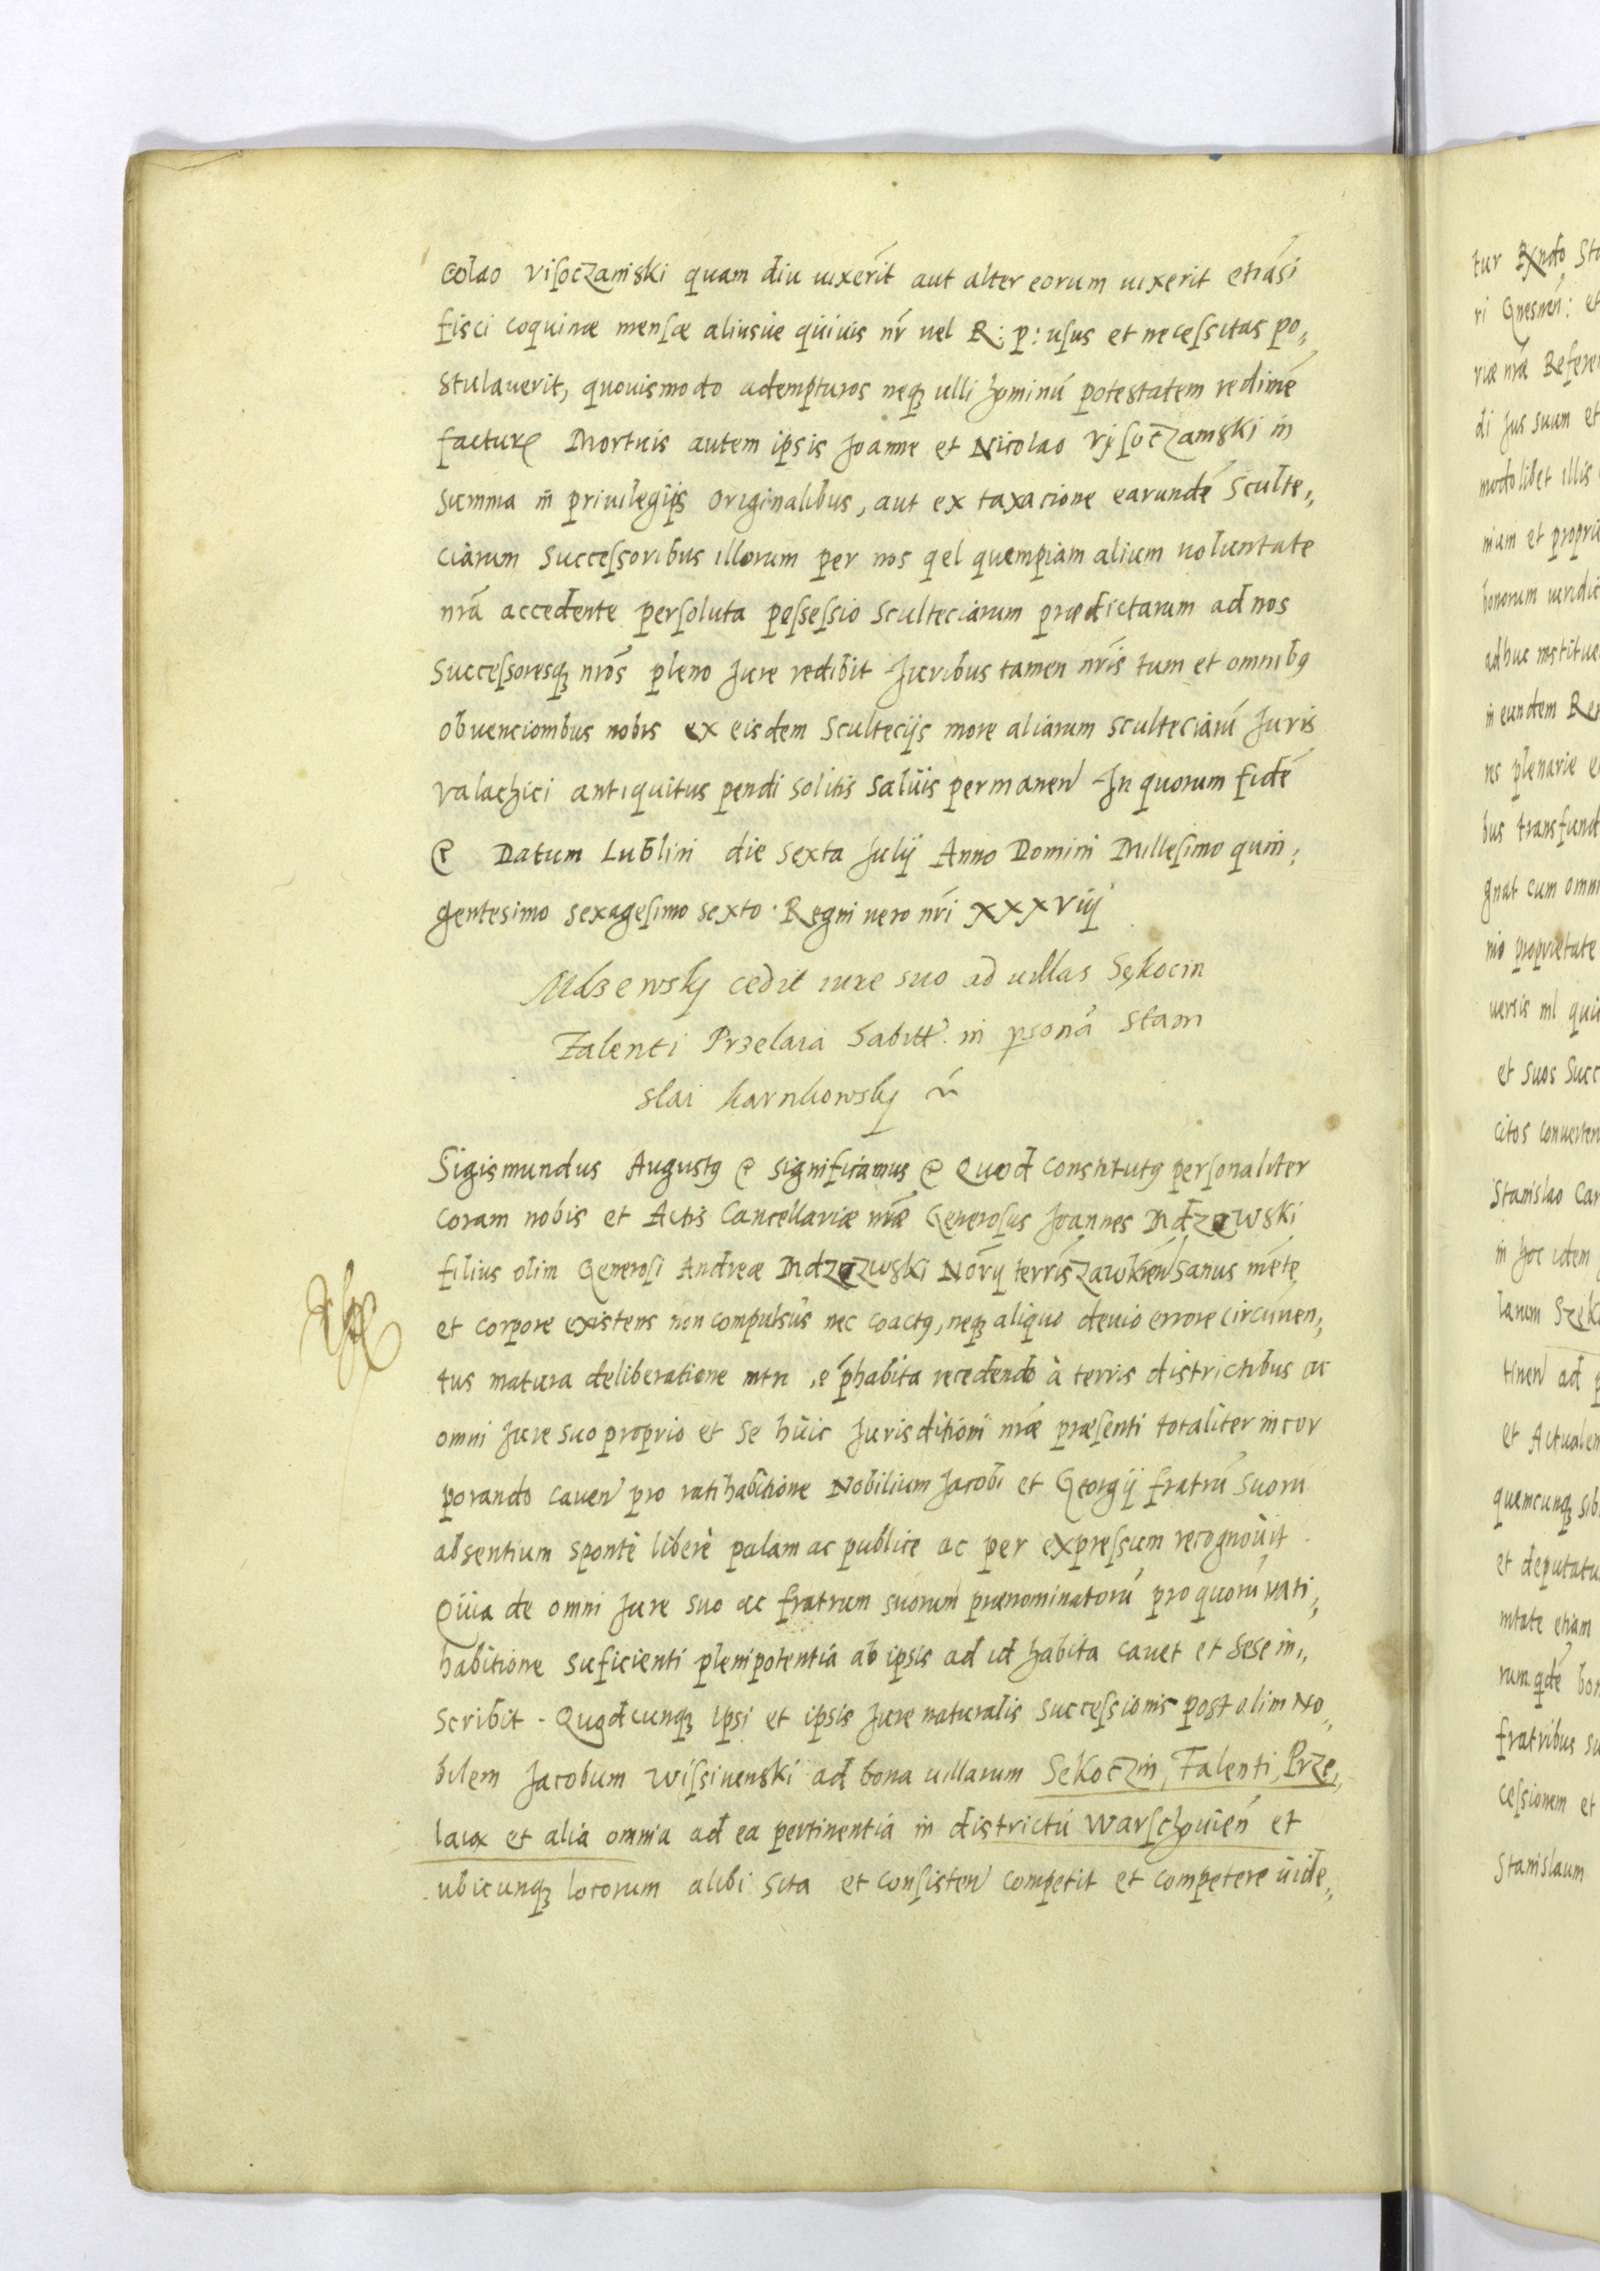 colao Visoczanski quam diu uixerit aut alter eorum uixerit etiāsi
fisci coquinæ mensæ aliusue quiuis nr̄ uel R: p: usus et necessitas po„
stulauerit, quouismodo adempturos neq₃ ulli hominū potestatem redimē
factur Mortuis autem ipsis Joanne et Nicolao Vÿsoczanski in
Summa in priuilegijs originalibus, aut ex taxacione earundē Sculte„
ciarum Successoribus illorum per nos qel quempiam alium uoluntate
nrā accedente persoluta possessio Scultecïarum prædictarum ad nos
Successoresq₃ nrōs pleno Jure redibit Juribus tamen nrīs tum et omnibꝯ
obuencionibus nobis ex eisdem Scultecijs more aliarum Scultecïarū Juris
Valachici antiquitus pendi solitis Saluis permanen In quorum fidē
& Datum Lublini die Sexta Julij Anno Domini Millesimo quin„
gentesimo Sexagesimo Sexto. Regni uero nrī xxxvij
Mdzewskÿ cedit iure suo ad uillas Sękocin
Falenti Przelaia habitt. in psonā Stani
slai Karnkowskÿ
Sigismundus Augustꝯ & significamus & Quod Constitutꝯ personaliter
coram nobis et Actis Cancellariæ nræ Generosus Joannes Mdzewski
filius olim Generosi Andreæ Mdzezwski Nōrij terris Zawkień Sanus mēte
et corpore existens non compulsus nec coactꝯ, neq₃ aliquo deuio errore circūuen„
tus matura deliberatione phabita recedendo à terris districtibus ac
omni Jure Suo proprio et se huic Jurisditioni nræ præsenti totaliter incor
porando cauen pro ratihabitione Nobilium Jacobi et Georgij fratrū Suorū
absentium Spontè liberè palam ac publice ac per expressum recognouit
Quia de omni Jure Suo ac fratrum Suorum prænominatorū pro quorū rati„
habitione Suficienti plenipotentia ab ipsis ad id habita cauet et Sese in„
scribit. Quodcunq₃ ipsi et ipsis Jure naturalis Successionis post olim No„
bilem Jacobum Wissinenski ad bona uillarum Sekoczin, Falenti, Prze„
laiæ et alia omnia ad ea pertinentia in districtu Warschouień et
ubicunq₃ locorum alibi Sita et Consisten Competit et Competere uide„
tur
ri Gnesneń: et
riæ nræ Refere
di Jus suum et
modolibet illis
niam et proprie
bonorum iuridic
adhuc institue
in eundem Re
ns plenarie
bus transfund
gnat cum omni
nio proprietate
uersis
et Suos Succ
citos conuerten
Stanislao Car
in hoc idem
larum Szęk
tinen ad p
et Actualem
quemcunq₃ sib
et deputatu
ntate etiam
rum qdē bon
fratribus su
cessionem et
Stanislaum